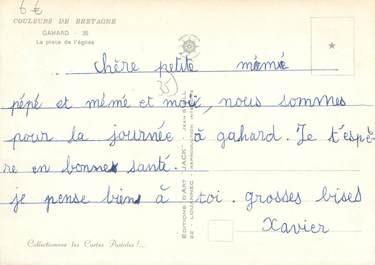 6 €
COULEURS DE BRETAGNE
GAHARD - 35
La place de l'église
chère petite mémé
35
pépé et mémé et moi, nous sommes
pour la journée à gahard. Je t'espè-
re en bonne santé.
je pense bien à toi. grosses bises
Xavier
EDITIONS D'ART "JACK"
22 - LOUANNEC
REPRODUCTION INTERDITE
Collectionnez les Cartes Postales !...